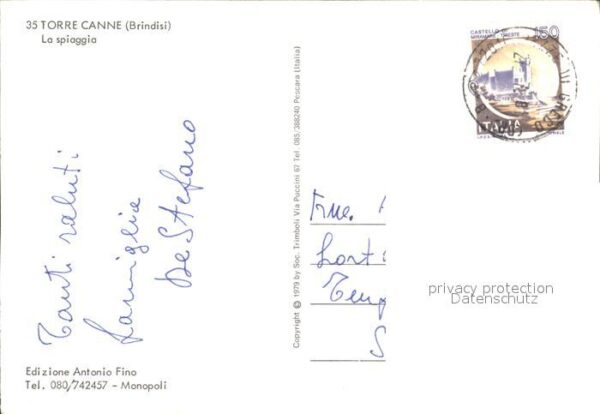 35 TORRE CANNE (Brindisi)
La spiaggia
Tanti saluti
famiglia
De Stefano
Edizione Antonio Fino
Tel. 080/742457 - Monopoli
Copyright © 1979 by Soc. Trimboli Via Puccini 67 Tel. 085/388240 Pescara (Italia)
CASTELLO DI
MIRAMARE - TRIESTE
150
ITALIA
privacy protection
Datenschutz